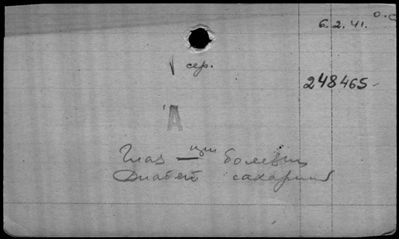 6.2.41. О.С
V сер.
248465-
А
Глаз — ции болезни
Диабет сахарный